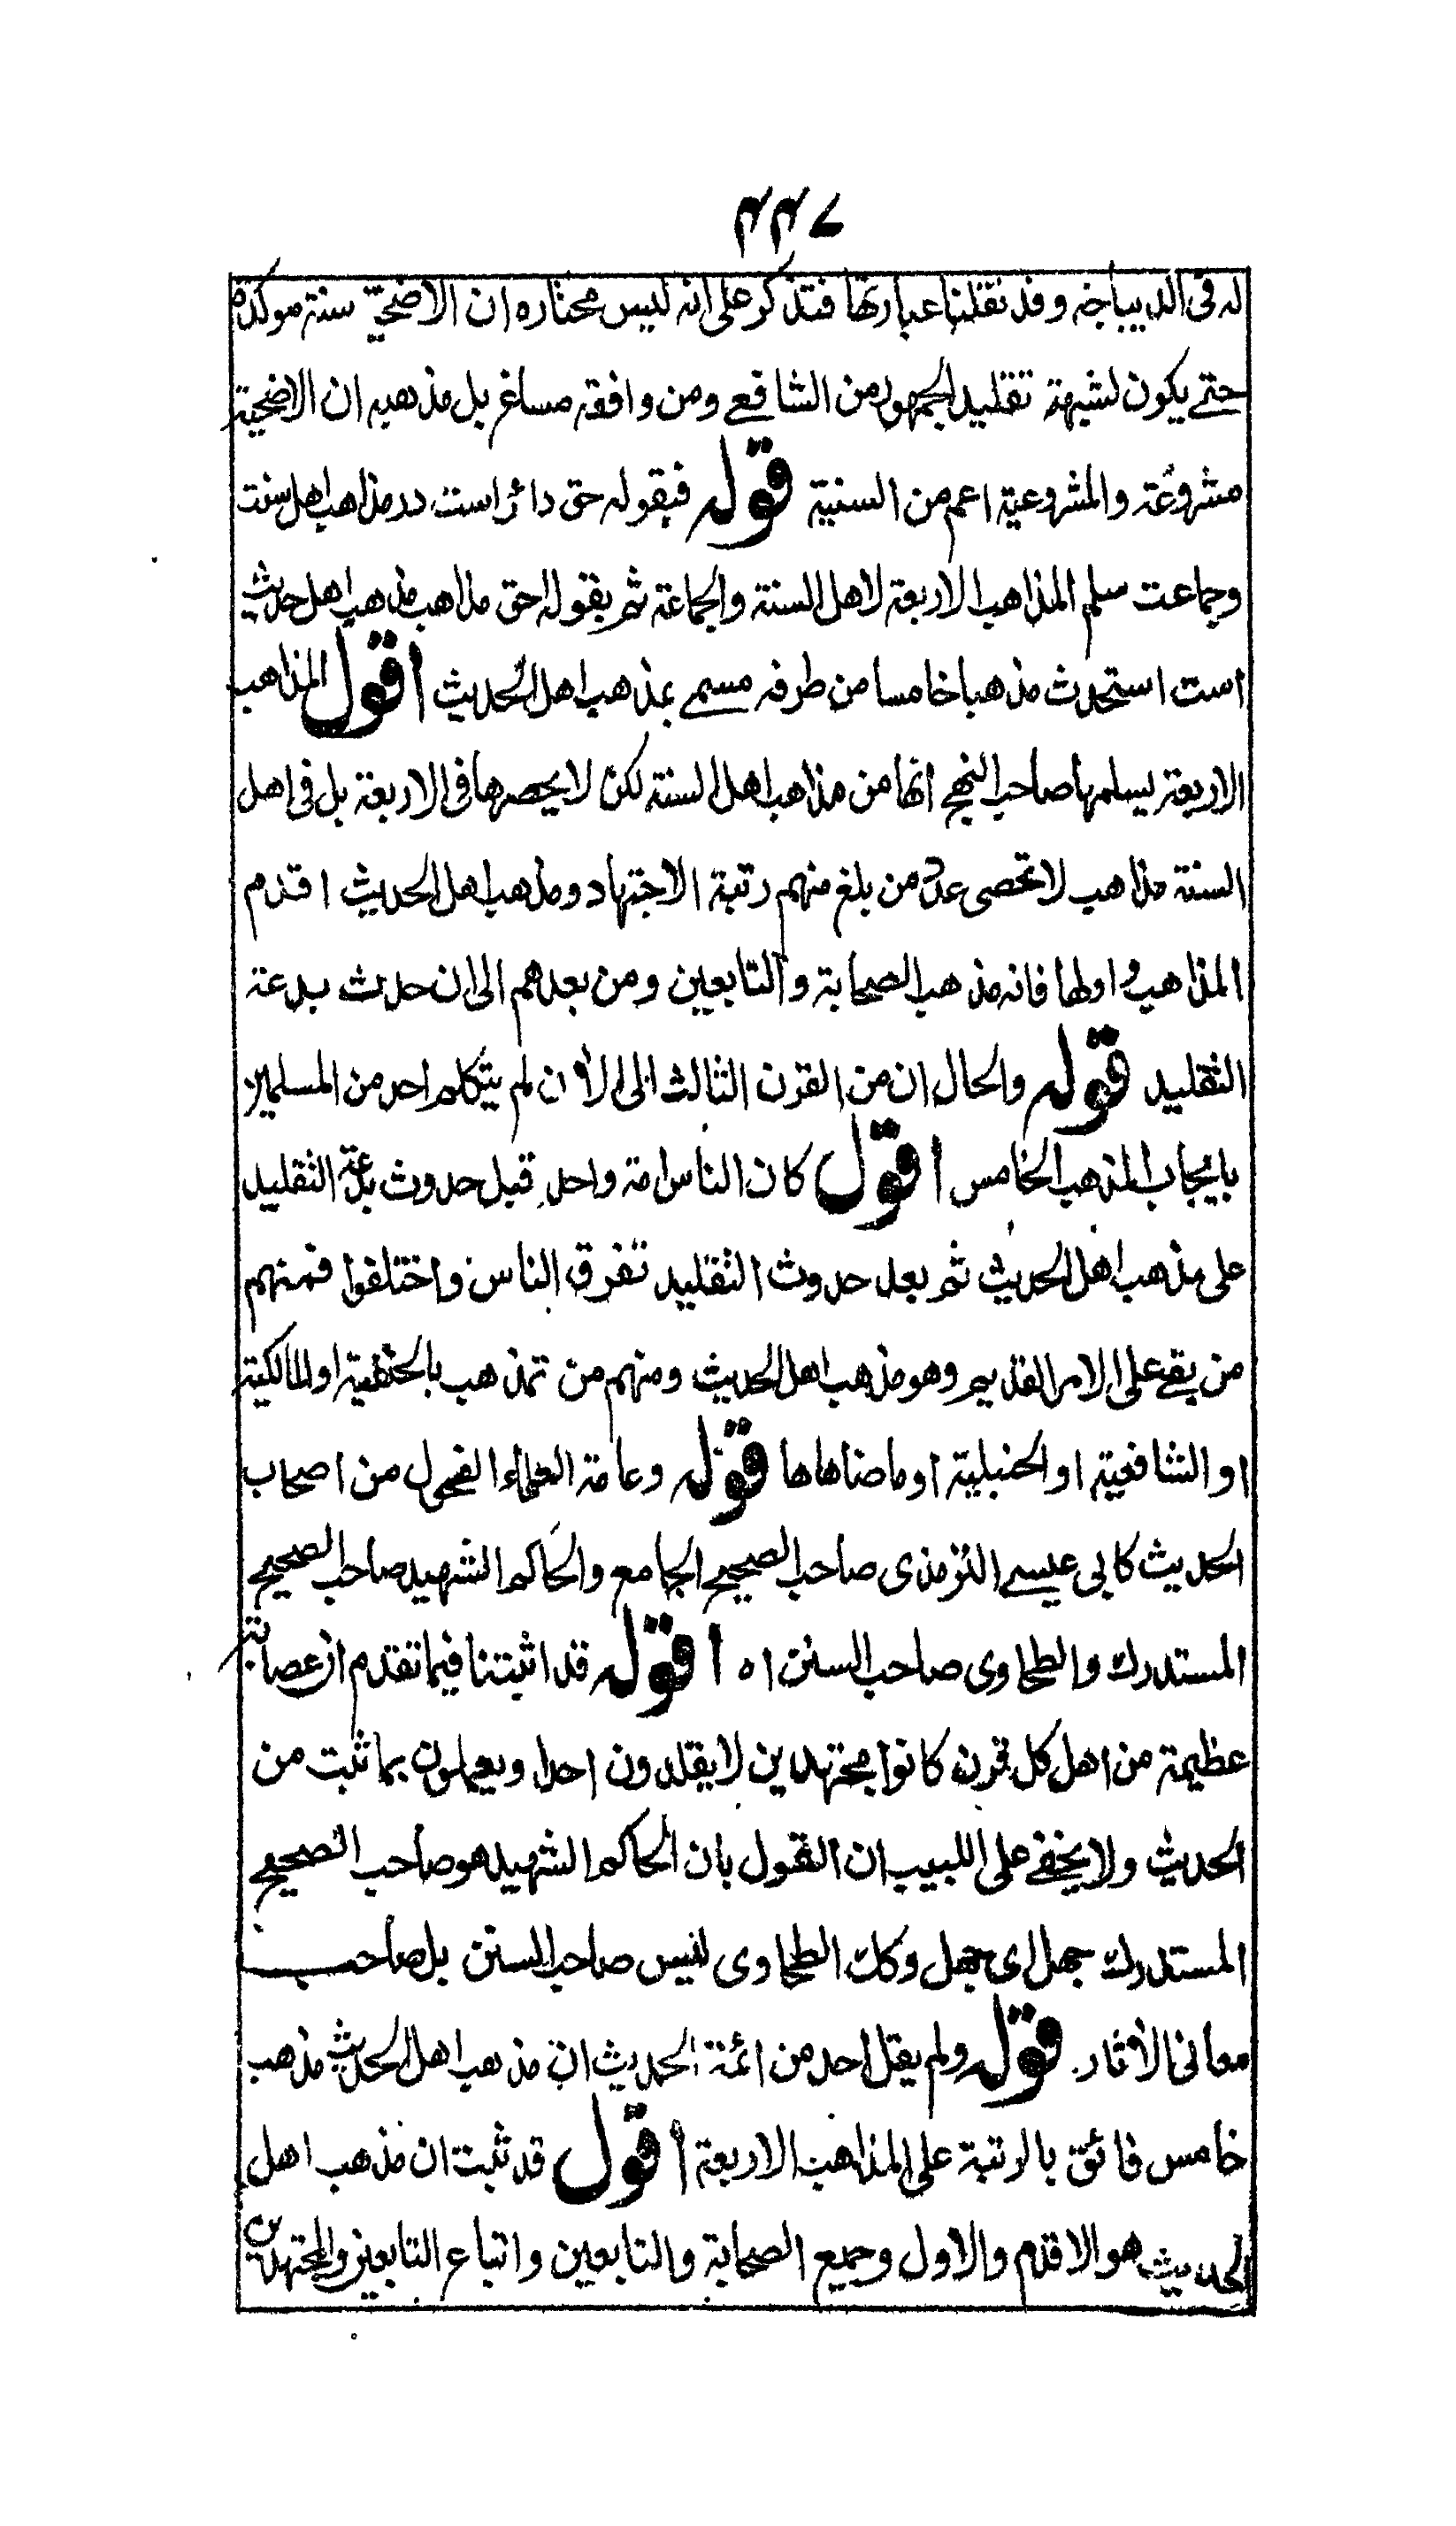 ٤٤٧
له فى الديباجه وقد نقلنا عبارتها فتذكر على انه ليس مختاره ان الاضحية سنة موكدة
حتے يكون لشبهة تقليد الجمهور من الشافعے ومن وافقه مساغ بل مذهبه ان الاضحية
مشروعة والمشروعية اعم من السنية قوله فبقوله حق دائر است در مذاهب اهل سنت
وجماعت سلم المذاهب الاربعة لاهل السنة والجماعة ثم بقوله احق مذاهب مذهب اهل حديث
است استحدث مذهبا خامسا من طرفه مسمے بمذهب اهل الحديث اقول المذاهب
الاربعة يسلمها صاحب النهج انها من مذاهب اهل السنة لكن لا يحصرها فى الاربعة بل فى اهل
السنة مذاهب لا تحصى عدد من بلغ منهم رتبة الاجتهاد ومذهب اهل الحديث اقدم
المذاهب واولها فانه مذهب الصحابة والتابعين ومن بعدهم الى ان حدث بدعة
التقليد قوله والحال ان من القرن الثالث الى الأن لم يتكلم احد من المسلمين
بايجاب المذهب الخامس اقول كان الناس امة واحدة قبل حدوث بدعة التقليد
على مذهب اهل الحديث ثم بعد حدوث التقليد تفرق الناس واختلفوا فمنهم
من بقے على الامر القديم وهو مذهب اهل الحديث ومنهم من تمذهب بالحنفية او المالكية
او الشافعية او الحنبلية او ما ضاهاها قوله وعامة العلماء الفحول من اصحاب
الحديث كابى عيسے الترمذى صاحب الصحيح الجامع والحاكم الشهيد صاحب الصحيح
المستدرك والطحاوى صاحب السنن اه اقوله قد اثبتنا فيما تقدم ان عصابة
عظيمة من اهل كل قرن كانوا مجتهدين لا يقلدون احدا ويعملون بما ثبت من
الحديث ولا يخفے على اللبيب ان القول بان الحاكم الشهيد هو صاحب الصحيح
المستدرك جهل اى جهل وكك الطحاوى ليس صاحب السنن بل صاحب
معانى الأثار قوله ولم يقل احد من ائمة الحديث ان مذهب اهل الحديث مذهب
خامس فائق بالرتبة على المذاهب الاربعة اقول قد ثبت ان مذهب اهل
الحديث هو الاقدم والاول وجميع الصحابة والتابعين واتباع التابعين والمجتهدين